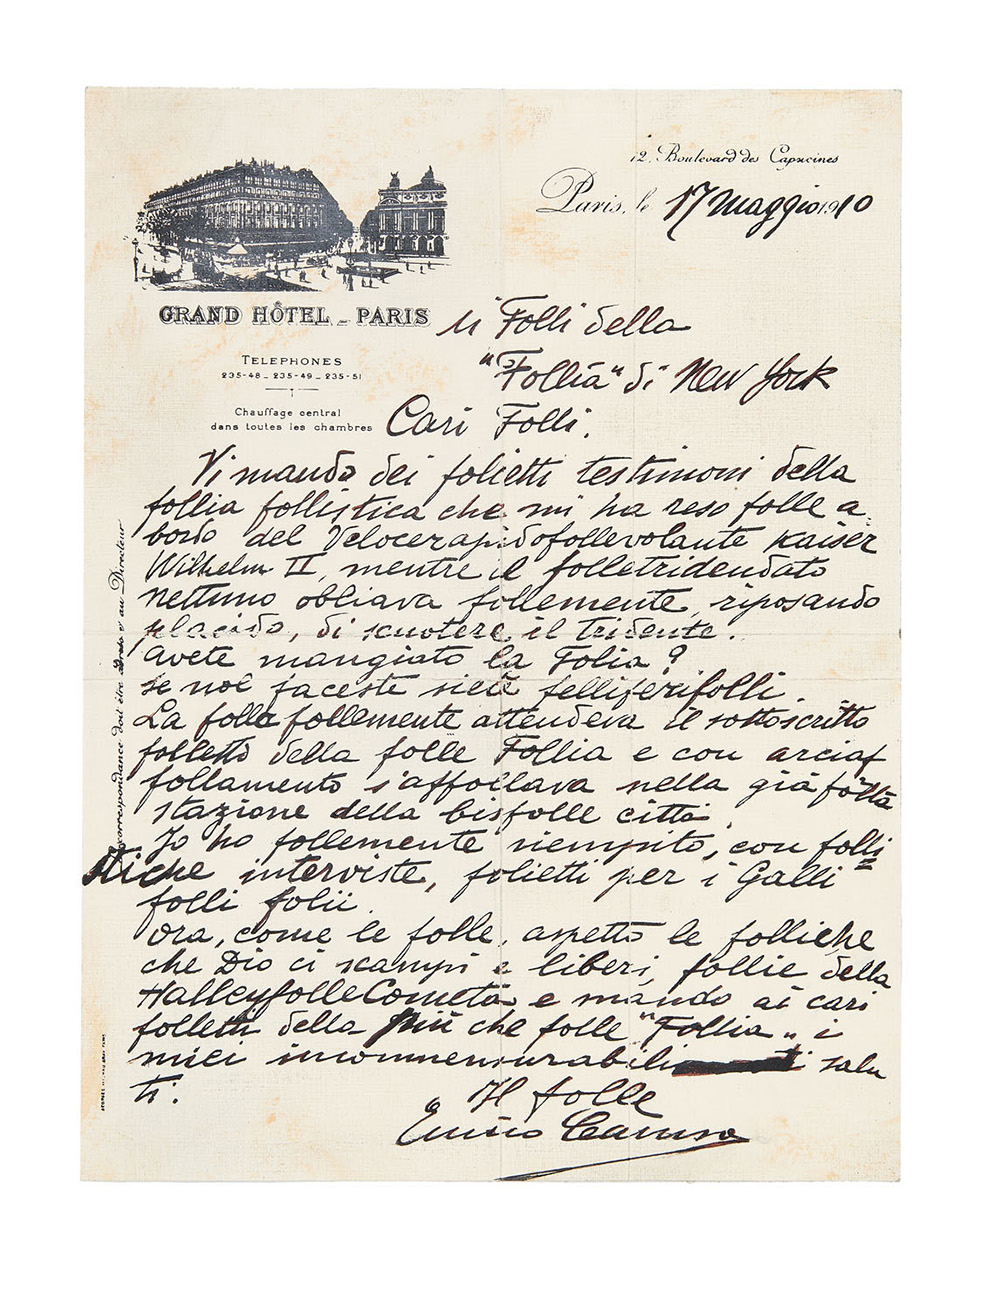 12. Boulevard des Capucines
Paris, le 17 Maggio 1910
GRAND HÔTEL - PARIS
TELEPHONES
235-48 - 235-49 - 235-51
Chauffage central
dans toutes les chambres
Ai Folli della
"Follia" di New York
Cari Folli.
Vi mando dei folietti testimoni della
follia follistica che mi ha reso folle a
bordo del Velocerapidofollevolante Kaiser
Wilhelm II, mentre il folletridendato
Nettuno obliava follemente, riposando
placido, di scuotere il tridente.
Avete mangiato la Folia?
Se nol faceste siete felliferifolli.
La folla follemente attendeva il sottoscritto
folletto della folle Follia e con arciaf
follamento s'affollava nella già folta
stazione della bisfolle città.
Io ho follemente riempito, con folli=
stiche interviste, folietti per i Galli
folli folii.
Ora, come le folle, aspetto le folliche
che Dio ci scampi e liberi, follie della
HalleyfolleCometa e mando ai cari
folletti della più che folle "Follia" i
miei incommensurabili salu
ti.
Il folle
Enrico Caruso
correspondance doit être adressée au Directeur